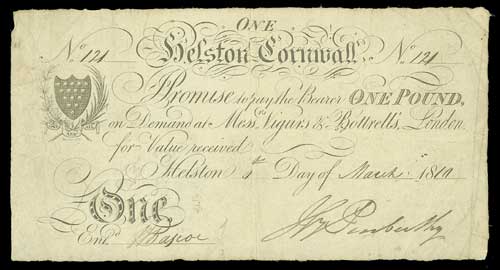 ONE
No. 121 Helston Cornwall. No. 121
I Promise to pay the Bearer ONE POUND,
on Demand at Messrs. Vigurs & Bottrell's, London
for Value received
Helston Day of March 1810
One
Entd.